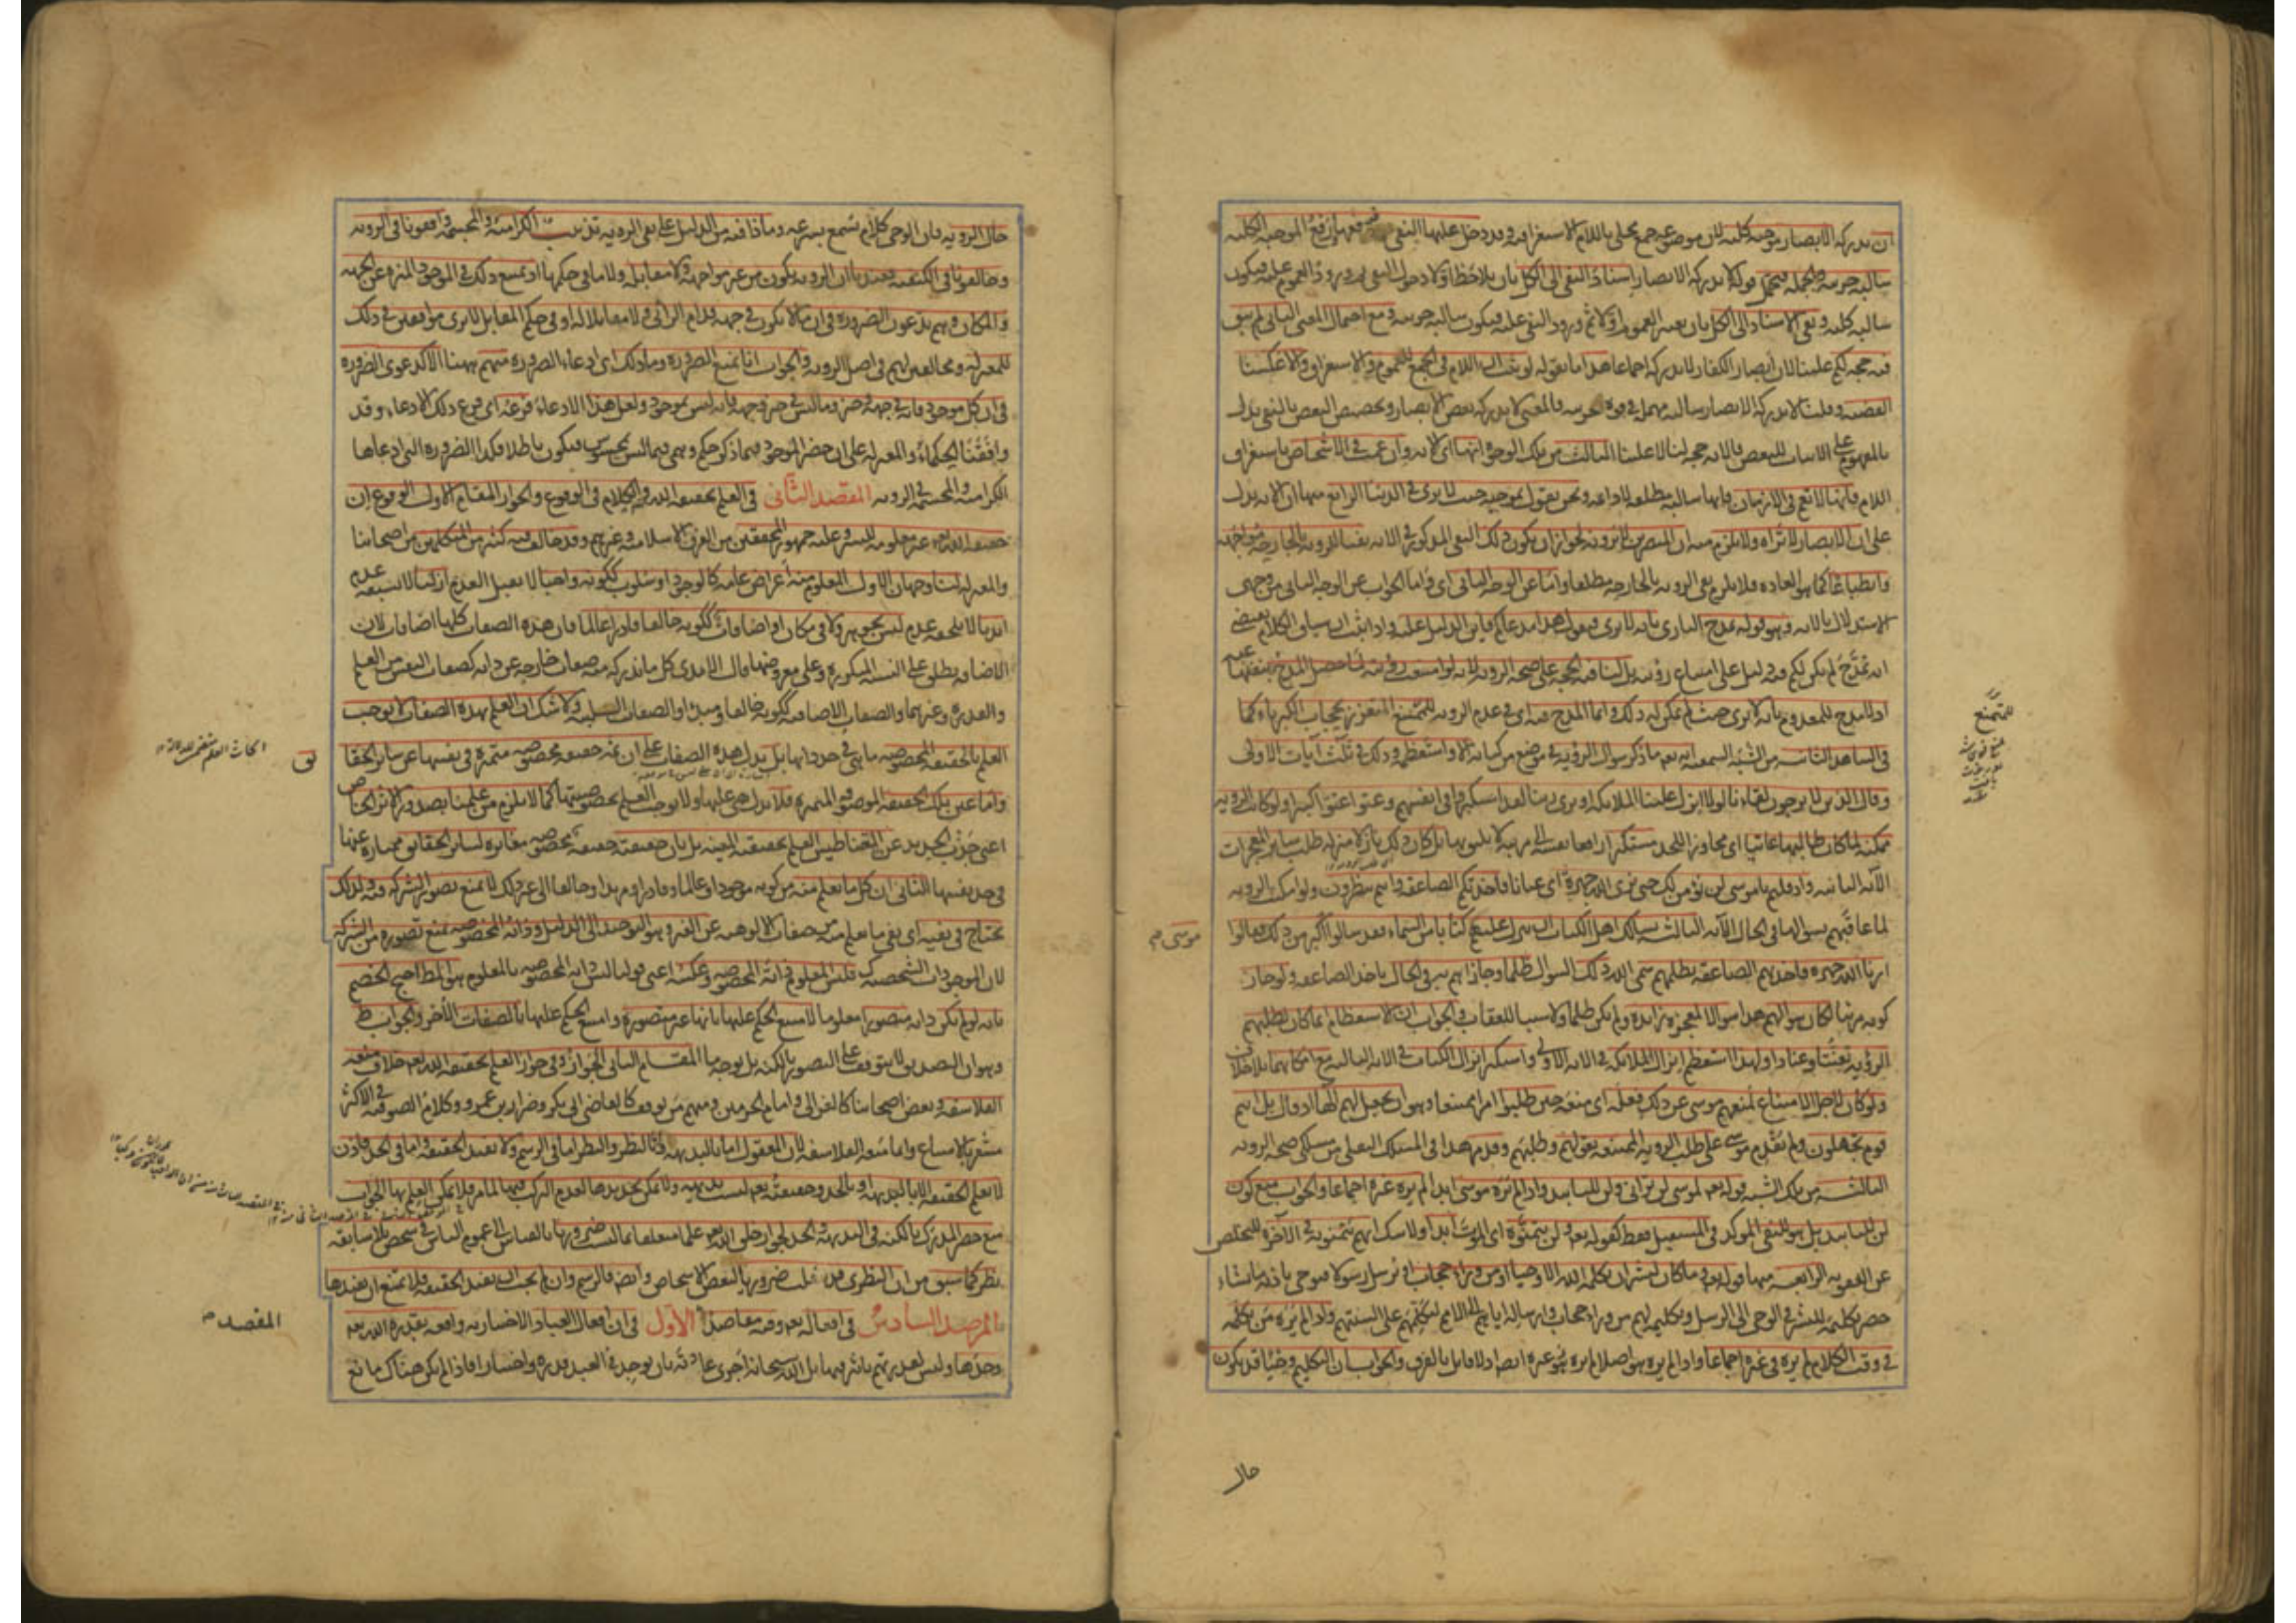 ان تدركه الابصار موجبة كلية لان موضوعه جمع محلى باللام الاستغراقية وقد دخل عليها النفي فرفعها رفع الموجبة الكلية
سالبة جزئية وبالجملة فيحتمل قوله لا تدركه الابصار اسناد النفي الى الكل بان يلاحظ اولا دخول النفي ثم ورود العموم عليه فيكون
سالبة كلية ونفي الاسناد الى الكل بان يعتبر العموم اولا ثم ورود النفي عليه فيكون سالبة جزئية ومع احتمال المعنى الثاني لم يبق
فيه حجة لكم علينا لان ابصار الكفار لا تدركه اجماعا هذا ما نقوله لو ثبت ان اللام في الجمع للعموم والاستغراق والا عكسنا
القضية وقلنا لا تدركه الابصار سالبة مهملة في قوة الجزئية فالمعنى لا تدركه بعض الابصار وتخصيص البعض بالنفي يدل
بالمفهوم على الاثبات للبعض فالاية حجة لنا لا علينا الثالث من تلك الوجوه انها اي الاية وان عمت في الاشخاص باستغراق
اللام فانها لا تعم في الازمان فانها سالبة مطلقة لا دائمة ونحن نقول بموجبه حيث لا يرى في الدنيا الرابع منها ان الاية تدل
على ان الابصار لا تراه ولا يلزم منه ان المبصرين لا يرونه لجواز ان يكون ذلك النفي المذكور في الاية نفيا للرؤية بالجارحة مواجهة
وانطباعا كما هو العادة فلا يلزم نفي الرؤية بالجارحة مطلقا واما عن الوجه الثاني اي واما الجواب عن الوجه الثاني من وجهي
الاستدلال بالاية وهو قوله تمدح الباري بانه لا يرى فنقول هذا مدعاكم فاين الدليل عليه واذا ثبت ان سياق الكلام يقتضي
انه تمدح لم يكن لكم فيه دليل على امتناع رؤيته بل لنا فيه الحجة على صحة الرؤية لانه لو امتنعت رؤيته لما حصل المدح بنفيها عنه
اذ لا مدح للمعدوم بانه لا يرى حيث لم يمكن له ذلك وانما المدح فيه اي في عدم الرؤية للممتنع المتعزز بحجاب الكبرياء كما
في الشاهد الثانية من الشبه السمعية انه تعم ما ذكر سؤال الرؤية في موضع من كتابه الا واستعظمه وذلك في ثلث آيات الاولى
وقال الذين لا يرجون لقاءنا لولا انزل علينا الملائكة او نرى ربنا لقد استكبروا في انفسهم وعتوا عتوا كبيرا ولو كانت الرؤية
ممكنة لما كان طالبها عاتيا اي مجاوزا للحد مستكبرا رافعا نفسه الى مرتبة لا يليق بها بل كان ذلك نازلا منزلة طلب سائر المعجزات
الآية الثانية واذ قلتم يا موسى لن نؤمن لك حتى نرى الله جهرة اي عيانا فاخذتكم الصاعقة وانتم تنظرون ولو امكنت الرؤية
لما عاقبهم بسؤالها في الحال الآية الثالثة يسألك اهل الكتاب ان تنزل عليهم كتابا من السماء فقد سألوا اكبر من ذلك فقالوا
موسى
ارنا الله جهرة فاخذتهم الصاعقة بظلمهم سمى الله ذلك السؤال ظلما وجازاهم به في الحال باخذ الصاعقة ولو جاز
كونه مرئيا لكان سؤالهم هذا سؤالا لمعجزة زائدة ولم يكن ظلما ولا سببا للعقاب والجواب ان الاستعظام انما كان لطلبهم
الرؤية تعنتا وعنادا ولهذا استعظم انزال الملائكة في الاية الاولى واستكبر انزال الكتاب في الاية الثالثة مع امكانهما بلا خلاف
ولو كان لاجل الامتناع لمنعهم موسى عن ذلك فعله اي منعه حين طلبوا امرا ممتنعا وهو ان يجعل لهم الها اذ قال بل انتم
قوم تجهلون ولم يقدم موسى على طلب الرؤية الممتنعة بقولهم وطلبهم وقد مر هذا في المسلك النقلي من مسلكي صحة الرؤية
الثالثة من تلك الشبه قوله تعم لموسى لن تراني ولن للتأبيد واذا لم يره موسى ابدا لم يره غيره اجماعا والجواب منع كون
لن للتأبيد بل هو للنفي المؤكد في المستقبل فقط كقوله تعم ولن يتمنوه اي الموت ابدا ولا شك انهم يتمنونه في الآخرة للتخلص
عن العقوبة الرابعة منها قوله تعم وما كان لبشر ان يكلمه الله الا وحيا او من وراء حجاب او يرسل رسولا فيوحي باذنه ما يشاء
حصر تكليمه للبشر في الوحي الى الرسل وتكليمه لهم من وراء حجاب وارساله اياهم الى الامم ليكلمهم على السنتهم واذا لم يره من يكلمه
في وقت الكلام لم يره في غيره اجماعا واذا لم يره هو اصلا لم يره غيره ايضا اذ لا قائل بالفرق والجواب ان التكليم وحيا قد يكون
حال
حال الرؤية فان الوحي كلام يسمع بسرعة وماذا فيه من الدليل على نفي الرؤية تذنيب الكرامية والمجسمة وافقونا في الرؤية
وخالفونا في الكيفية فعندنا ان الرؤية يكون من غير مواجهة ولا مقابلة ولا ما في حكمها اذ يمتنع ذلك في الموجود المنزه عن الجهة
والمكان وهم يدعون الضرورة في ان ما لا يكون في جهة قدام الرائي ولا مقابلا له او في حكم المقابل لا يرى موافقين في ذلك
للمعتزلة ومخالفين لهم في اصل الرؤية والجواب انا نمنع الضرورة وما ذلك اي ادعاء الضرورة منهم ههنا الا كدعوى الضرورة
في ان كل موجود فانه في جهة وحيز وما ليس في حيز وجهة فانه ليس بموجود ولعل هذا الادعاء فرعه اي فرع ذلك الادعاء وقد
وافقنا الحكماء والمعتزلة على ان حصر الموجود فيما ذكر حكم وهمي فيما ليس بمحسوس فيكون باطلا فكذا الضرورة التي ادعاها
الكرامية والمجسمة في الرؤية المقصد الثاني في العلم بحقيقة الله والكلام في الوقوع والجواز المقام الاول الوقوع ان
حقيقة الله تعم غير معلومة للبشر وعليه جمهور المحققين من الفرق الاسلامية وغيرهم وقد خالف فيه كثير من المتكلمين من اصحابنا
والمعتزلة لنا وجهان الاول المعلوم منه اعراض عامة كالوجود او سلوب ككونه واجبا لا يقبل العدم ازليا لا يسبقه عدم
ابديا لا يلحقه عدم ليس بجوهر ولا في مكان او اضافات ككونه خالقا قادرا عالما فان هذه الصفات كلها اضافات لان
الاضافة يطلق على النسبة المتكررة وعلى معروضها قال الامدي كل ما ندركه منه صفات خارجة عن ذاته كصفات النفس من العلم
والقدرة وغيرهما والصفات الاضافية ككونه خالقا ومبدأ والصفات السلبية ولا شك ان العلم بهذه الصفات لا يوجب
العلم بالحقيقة المخصوصة ما هي في حد ذاتها بل يدل هذه الصفات على ان ثمة حقيقة مخصوصة متميزة في نفسها عن سائر الحقا
ئق
واما عين تلك الحقيقة الموصوفة المتميزة فلا تدل هي عليها ولا يوجب العلم بخصوصيتها كما لا يلزم من علمنا بصدور الاثر الخاص
اعني جذب الحديد عن المغناطيس العلم بحقيقته المعينة بل بان حقيقته حقيقة مخصوصة مغايرة لسائر الحقائق ممتازة عنها
في حد نفسها الثاني ان كل ما يعلم منه من كونه موجودا وعالما وقادرا ومريدا وخالقا الى غير ذلك لا يمنع تصوره الشركة فيه ولذلك
يحتاج في نفيه اي نفي ما يعلم منه من صفات الالوهية عن الغير وهو التوحيد الى الدليل وذاته المخصوصة يمنع تصوره من الشركة
لان الموجودات الشخصية كذلك فليس المعلوم ذاته المخصوصة وعكسه اعني قولنا ليس ذاته المخصوصة بالمعلوم هو المط احتج الخصم
بانه لو لم يكن ذاته متصورا معلوما لامتنع الحكم عليها بانها غير متصورة وامتنع الحكم عليها بالصفات الأخر والجواب ظ
وهو ان التصديق لا يتوقف على التصور بالكنه بل بوجه ما المقام الثاني الجواز وفي جواز العلم بحقيقة الله تعم خلاف منعه
الفلاسفة وبعض اصحابنا كالغزالي وامام الحرمين ومنهم من توقف كالقاضي ابي بكر وضرار بن عمرو وكلام الصوفية في الاكثر
مشعر بالامتناع وانما منعه الفلاسفة لان المعقول اما بالبديهة واما بالنظر والنظر اما في الرسم ولا يفيد الحقيقة واما في الحد فاذن
لا يعلم الحقيقة الا بالبديهة او بالحد وحقيقته تعم ليست بديهية ولا يمكن تحديدها لعدم التركب فيها لما مر فلا يمكن العلم بها الجواب
منع حصر المدرك بالكنه في البديهة والحد لجواز خلق الله تعم علما متعلقا بما ليست ضروريا بالقياس الى عموم الناس في شخص بلا سابقة
نظر كما سبق من ان النظري قد ينقلب ضروريا لبعض الاشخاص وايضا فالرسم وان لم يجب ان يفيد الحقيقة فلا يمتنع ان يفيدها
المرصد السادس في افعاله تعم وفيه مقاصد الاول في ان افعال العباد الاختيارية واقعة بقدرة الله تعم
المقصد
وحدها وليس لقدرتهم تأثير فيها بل الله سبحانه اجرى عادته بان يوجد في العبد قدرة واختيارا فاذا لم يكن هناك مانع